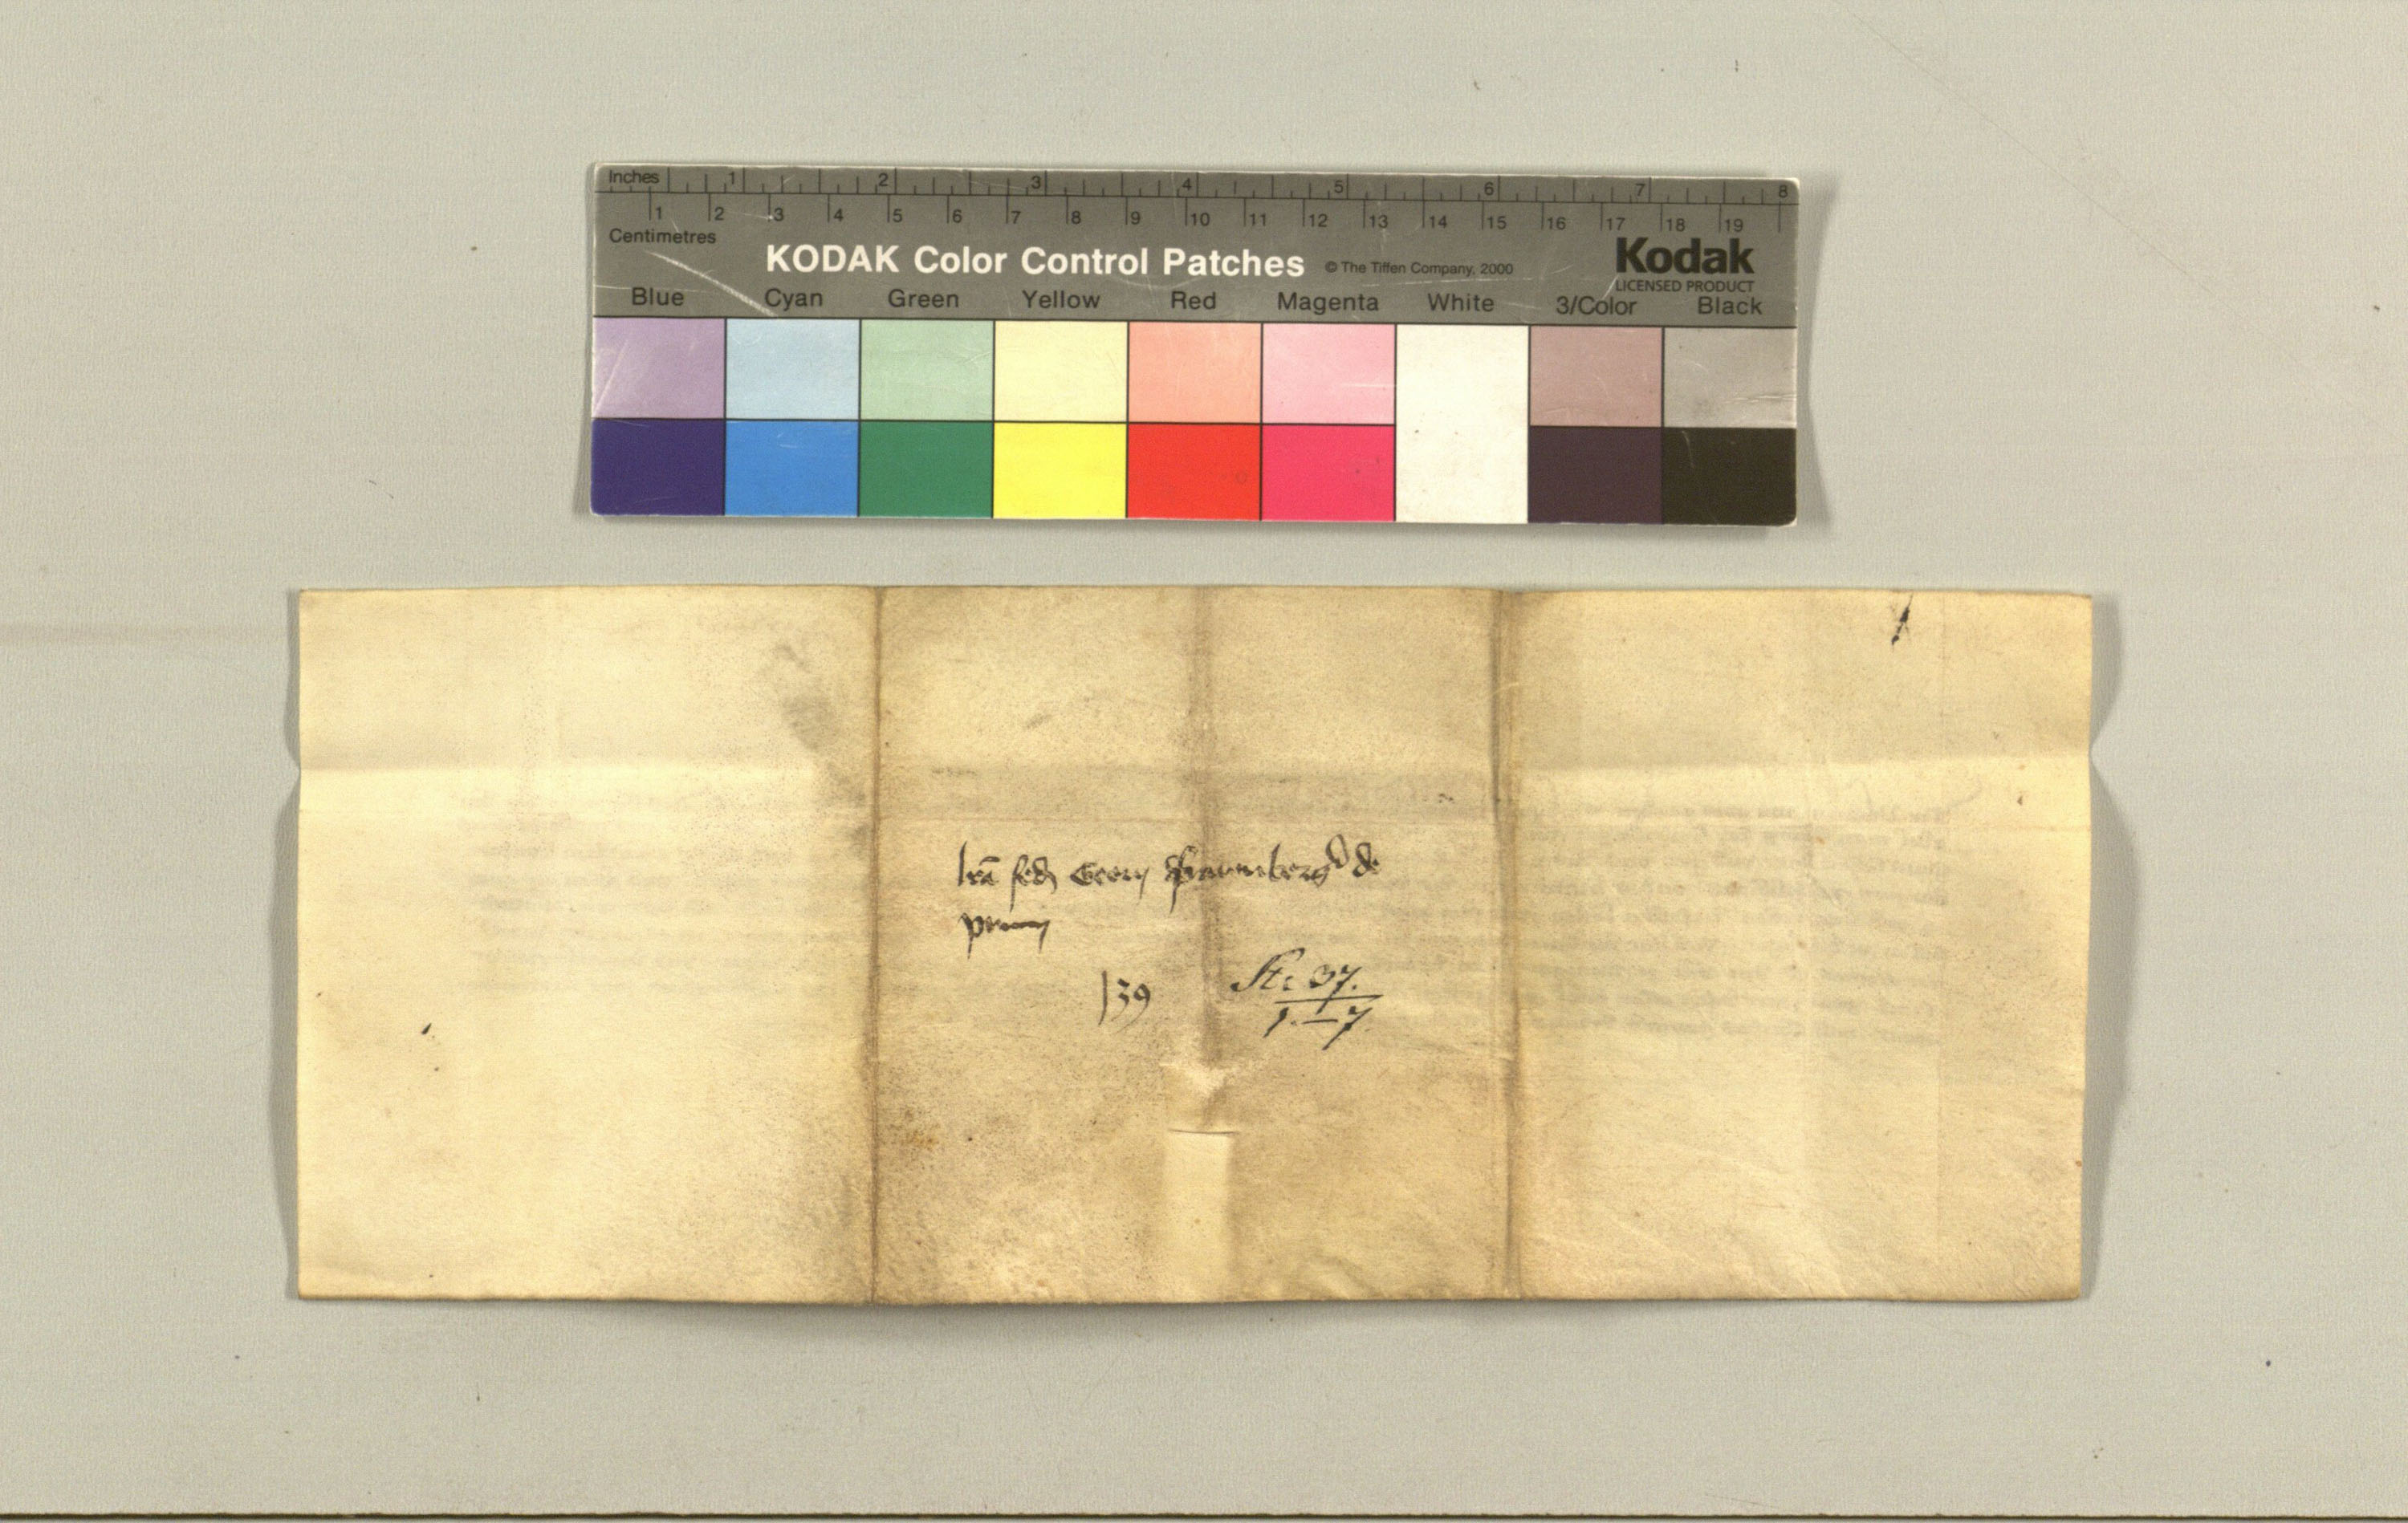 Inches 1 2 3 4 5 6 7 8
1 2 3 4 5 6 7 8 9 10 11 12 13 14 15 16 17 18 19
Centimetres
KODAK Color Control Patches © The Tiffen Company, 2000 Kodak
LICENSED PRODUCT
Blue Cyan Green Yellow Red Magenta White 3/Color Black
de
139 St: 37.
1.—7.